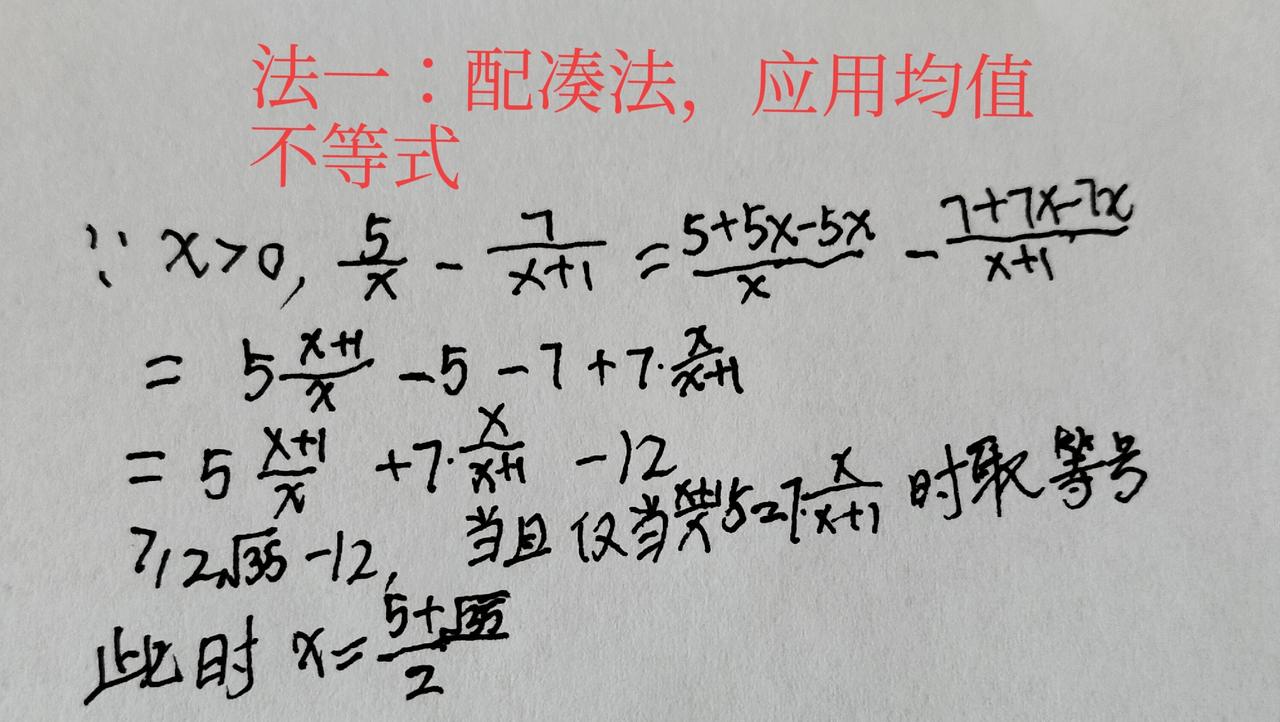 法一：配凑法，应用均值
不等式
∵ x>0, 5/x - 7/(x+1) = (5+5x-5x)/x - (7+7x-7x)/(x+1)
= 5 (x+1)/x -5 -7 +7· x/(x+1)
= 5 (x+1)/x +7· x/(x+1) -12
≥ 2√35 -12, 当且仅当 (x+1)/x 5=7· x/(x+1) 时取等号
此时 x= (5+√35)/2